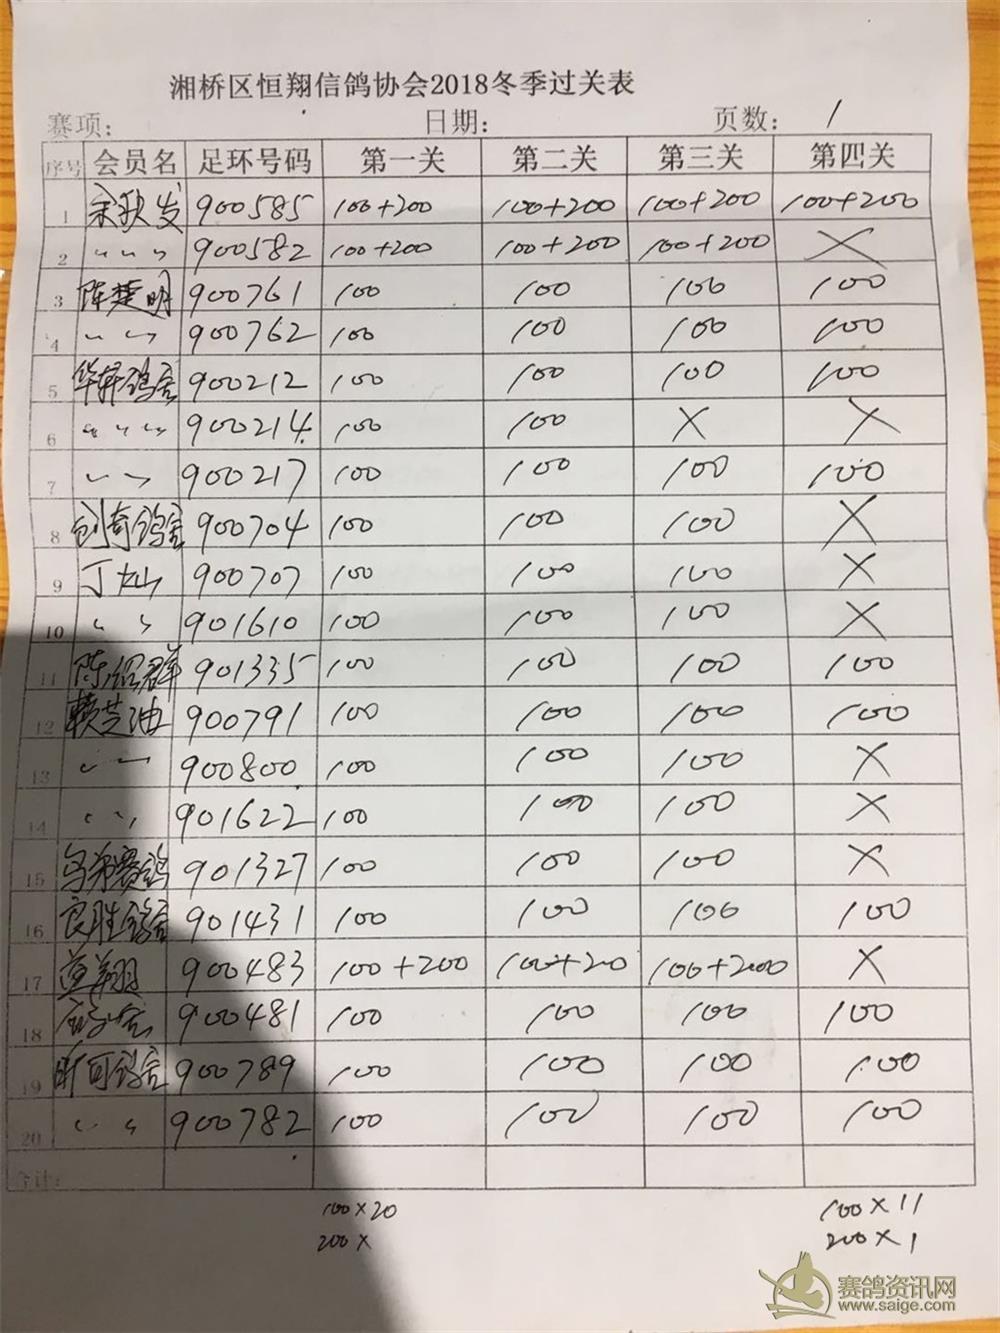 湘桥区恒翔信鸽协会2018冬季过关表
赛项: 日期: 页数: 1
序号 会员名 足环号码 第一关 第二关 第三关 第四关
1 余秋发 900585 100+200 100+200 100+200 100+200
2 〃 〃 〃 900582 100+200 100+200 100+200 X
3 陈楚明 900761 100 100 100 100
4 〃 〃 900762 100 100 100 100
5 华轩鸽舍 900212 100 100 100 100
6 〃 〃 〃 900214 100 100 X X
7 〃 〃 900217 100 100 100 100
8 创奇鸽舍 900704 100 100 100 X
9 丁灿 900707 100 100 100 X
10 〃 〃 901610 100 100 100 X
11 陈绍群 901335 100 100 100 100
12 赖芝油 900791 100 100 100 100
13 〃 〃 900800 100 100 100 X
14 〃 〃 901622 100 100 100 X
15 赛鸽 901327 100 100 100 X
16 良胜鸽舍 901431 100 100 100 100
17 翔 900483 100+200 100+200 100+200 X
18 900481 100 100 100 100
19 鸽舍 900789 100 100 100 100
20 〃 〃 900782 100 100 100 100
合计:
100×20 100×11
200× 200×1
赛鸽资讯网
www.saige.com